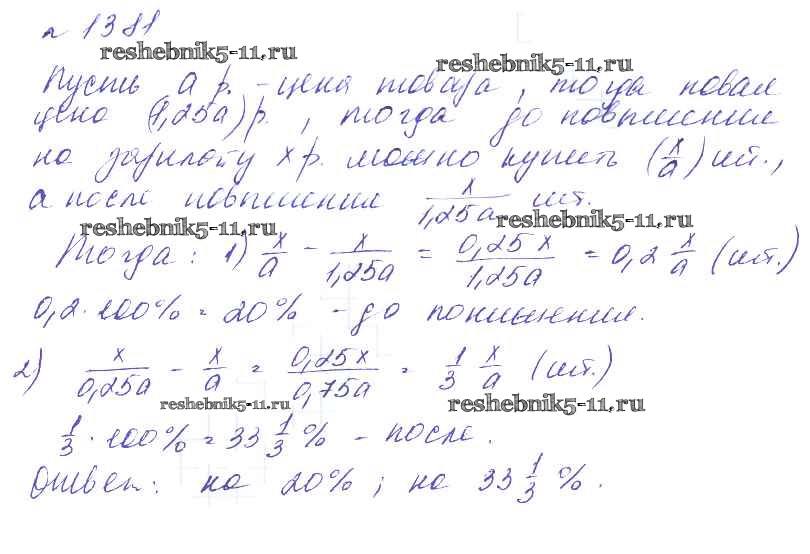 № 1381
reshebnik5-11.ru reshebnik5-11.ru
Пусть a р. - цена товара, тогда новая
цена (1,25a) р., тогда до повышения
на зарплату x р. можно купить (x/a) шт.,
а после повышения x/1,25a шт.
reshebnik5-11.ru reshebnik5-11.ru
Тогда: 1) x/a - x/1,25a = 0,25x/1,25a = 0,2 x/a (шт.)
0,2 · 100% = 20% - до понижения.
2) x/0,25a - x/a = 0,25x/0,75a = 1/3 x/a (шт.)
reshebnik5-11.ru reshebnik5-11.ru
1/3 · 100% = 33 1/3 % - после.
Ответ: на 20%; на 33 1/3 %.